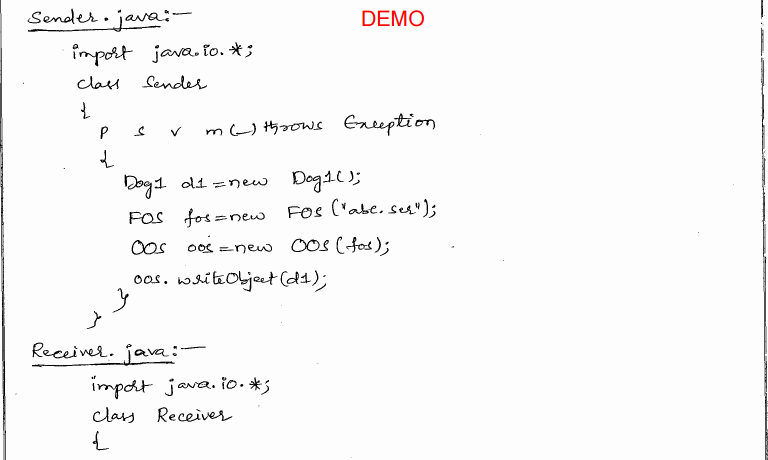 DEMO
Sender.java:-
import java.io.*;
class Sender
{
p s v m(—) throws Exception
{
Dog1 d1 = new Dog1();
FOS fos = new FOS("abc.ser");
OOS oos = new OOS(fos);
oos.writeObject(d1);
}
}
Receiver.java:-
import java.io.*;
class Receiver
{